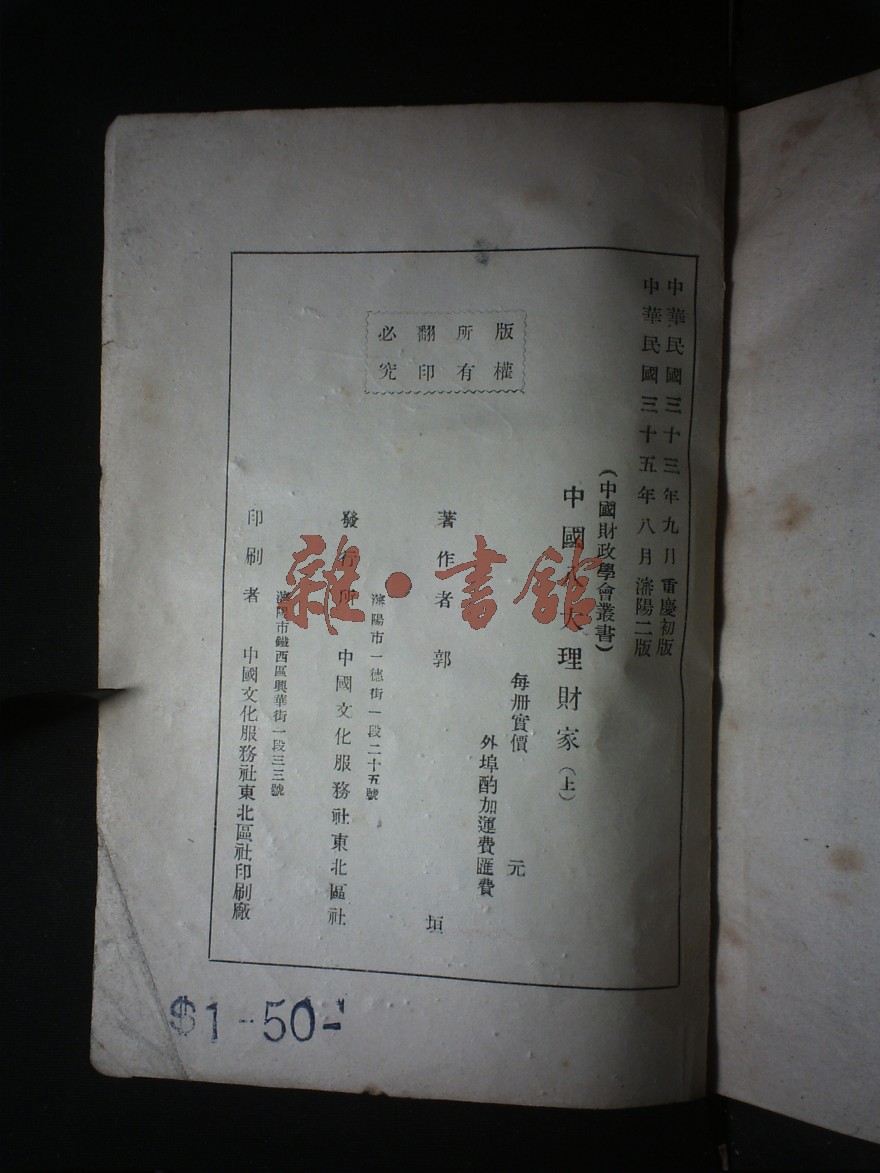 中華民國三十三年九月重慶初版
中華民國三十五年八月瀋陽二版
(中國財政學會叢書)
中國八大理財家(上)
每册實價 元
外埠酌加運費匯費
版權
所有
翻印
必究
著作者 郭 垣
瀋陽市一德街一段二十五號
發行所 中國文化服務社東北區社
瀋陽市鐵西區興華街一段三三號
印刷者 中國文化服務社東北區社印刷廠
$1-50-
雜·書館